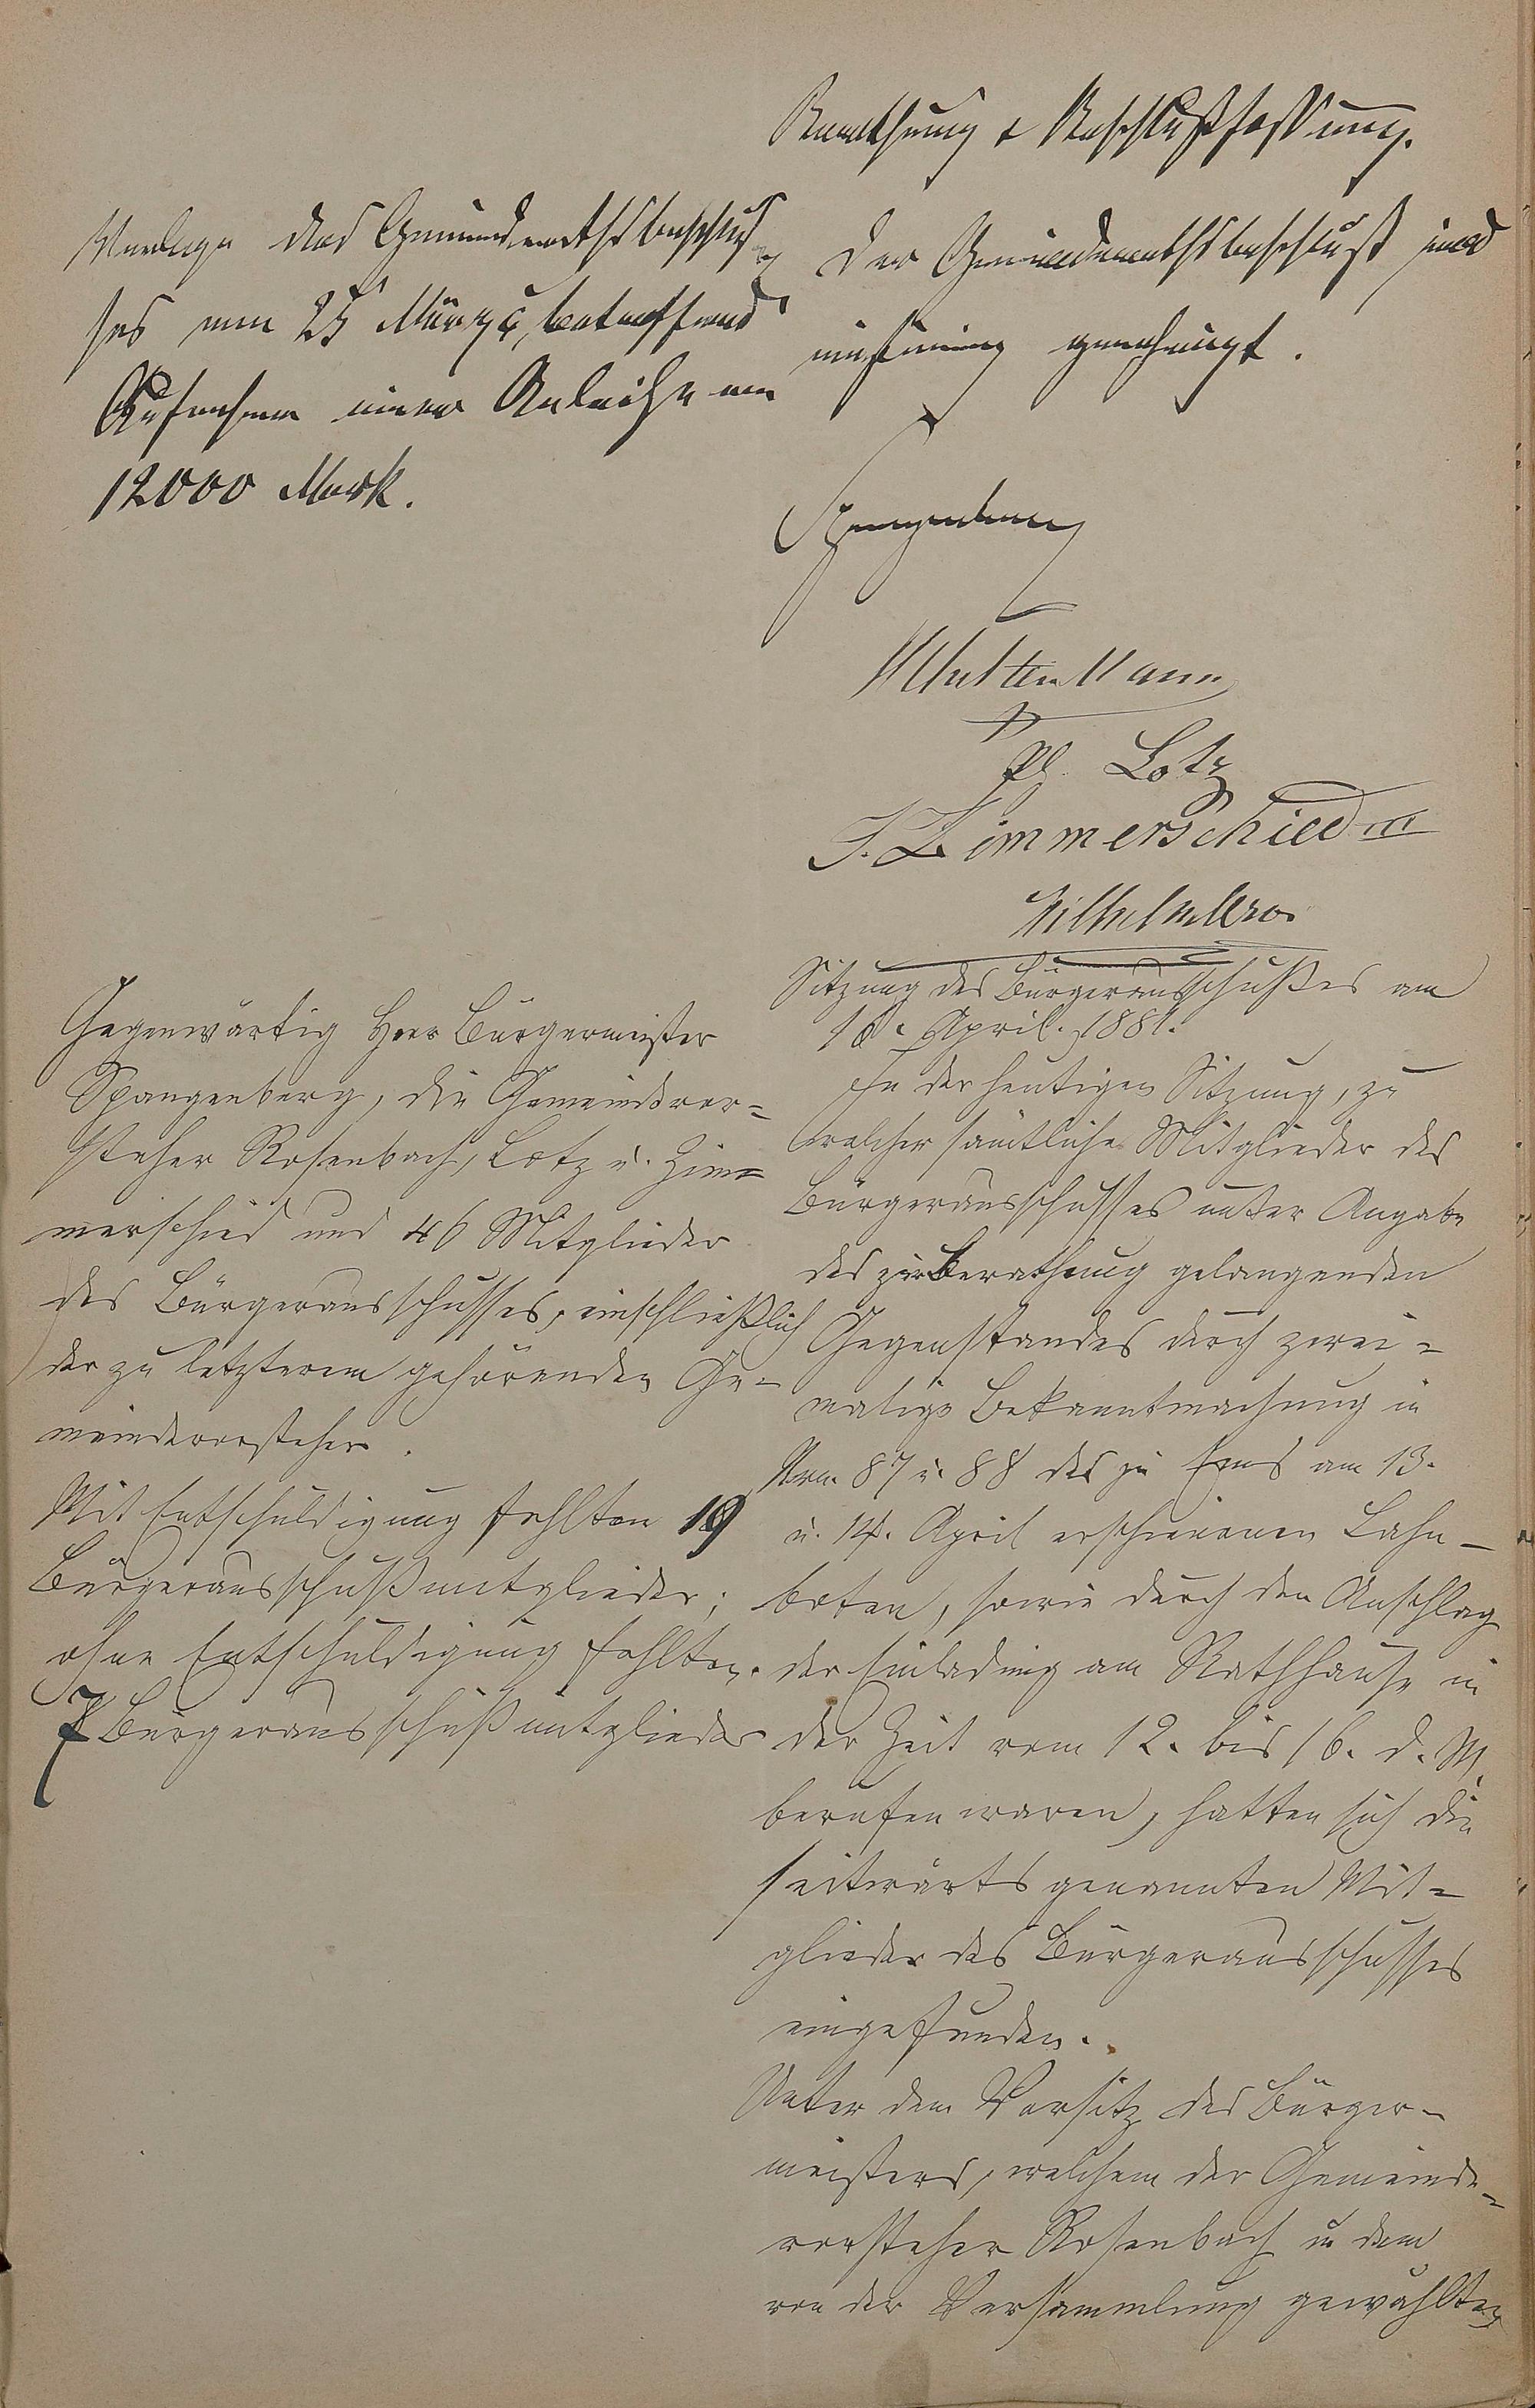 Berathung & Beschlußfassung.
Vorlage des Gemeinderathsbeschlus
ses vom 25 März c, betreffend
Aufnahme einer Anleihe von
12000 Mark.
Der Gemeinderathsbeschluß wird
einstimmig genehmigt.
Spangenberg
Ph. Lotz
J. Zimmerschied III
Wilhelm
Gegenwärtig Herr Bürgermeister
Spangenberg, die Gemeindevor-
steher Rosenbach, Lotz u. Zim-
merschied und 46 Mitglieder
des Bürgerausschusses, einschließlich
der zu letzterem gehörenden Ge-
meindevorsteher.
Mit Entschuldigung fehlten 19
Bürgerausschußmitglieder;
ohne Entschuldigung fehlten
7 Bürgerausschußmitglieder
Sitzung des Bürgerausschußes am
16. April. 1881.
In der heutigen Sitzung, zu
welcher sämtliche Mitglieder des
Bürgerausschusses unter Angabe
des zur Berathung gelangenden
Gegenstandes durch zwei-
malige Bekanntmachung in
Nro. 87 u. 88 des zu Ems am 13.
u. 14. April erschienenen Lahn-
boten, sowie durch den Anschlag
der Einladung am Rathhause in
der Zeit vom 12. bis 16. d. M.
berufen waren, hatten sich die
seitwärts genannten Mit-
glieder des Bürgerausschusses
eingefunden.
Unter dem Vorsitz des Bürger-
meisters, welchem der Gemeinde-
vorsteher Rosenbach u dem
von der Versammlung gewählten